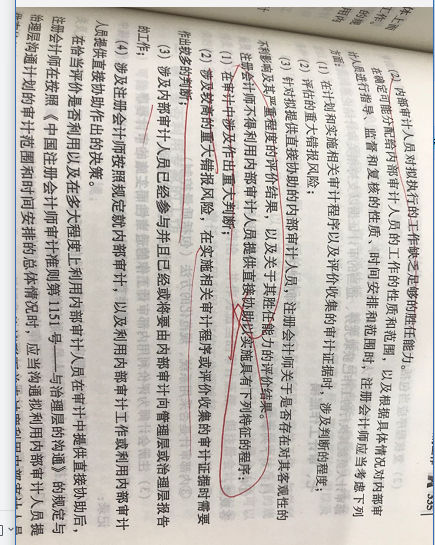 (2) 内部审计人员对拟执行的工作缺乏足够的胜任能力。
在确定可能分配给内部审计人员的工作的性质和范围，以及根据具体情况对内部审
计人员进行指导、监督和复核的性质、时间安排和范围时，注册会计师应当考虑下列
方面：
(1) 在计划和实施相关审计程序以及评价收集的审计证据时，涉及判断的程度；
(2) 评估的重大错报风险；
(3) 针对拟提供直接协助的内部审计人员，注册会计师关于是否存在对其客观性的
不利影响及其严重程度的评价结果，以及关于其胜任能力的评价结果。
注册会计师不得利用内部审计人员提供直接协助以实施具有下列特征的程序：
(1) 在审计中涉及作出重大判断；
(2) 涉及较高的重大错报风险，在实施相关审计程序或评价收集的审计证据时需要
作出较多的判断；
(3) 涉及内部审计人员已经参与并且已经或将要由内部审计向管理层或治理层报告
的工作；
(4) 涉及注册会计师按照规定就内部审计，以及利用内部审计工作或利用内部审计
人员提供直接协助作出的决策。
在恰当评价是否利用以及在多大程度上利用内部审计人员在审计中提供直接协助后，
注册会计师在按照《中国注册会计师审计准则第1151号——与治理层的沟通》的规定与
治理层沟通计划的审计范围和时间安排的总体情况时，应当沟通拟利用内部审计人员提
335